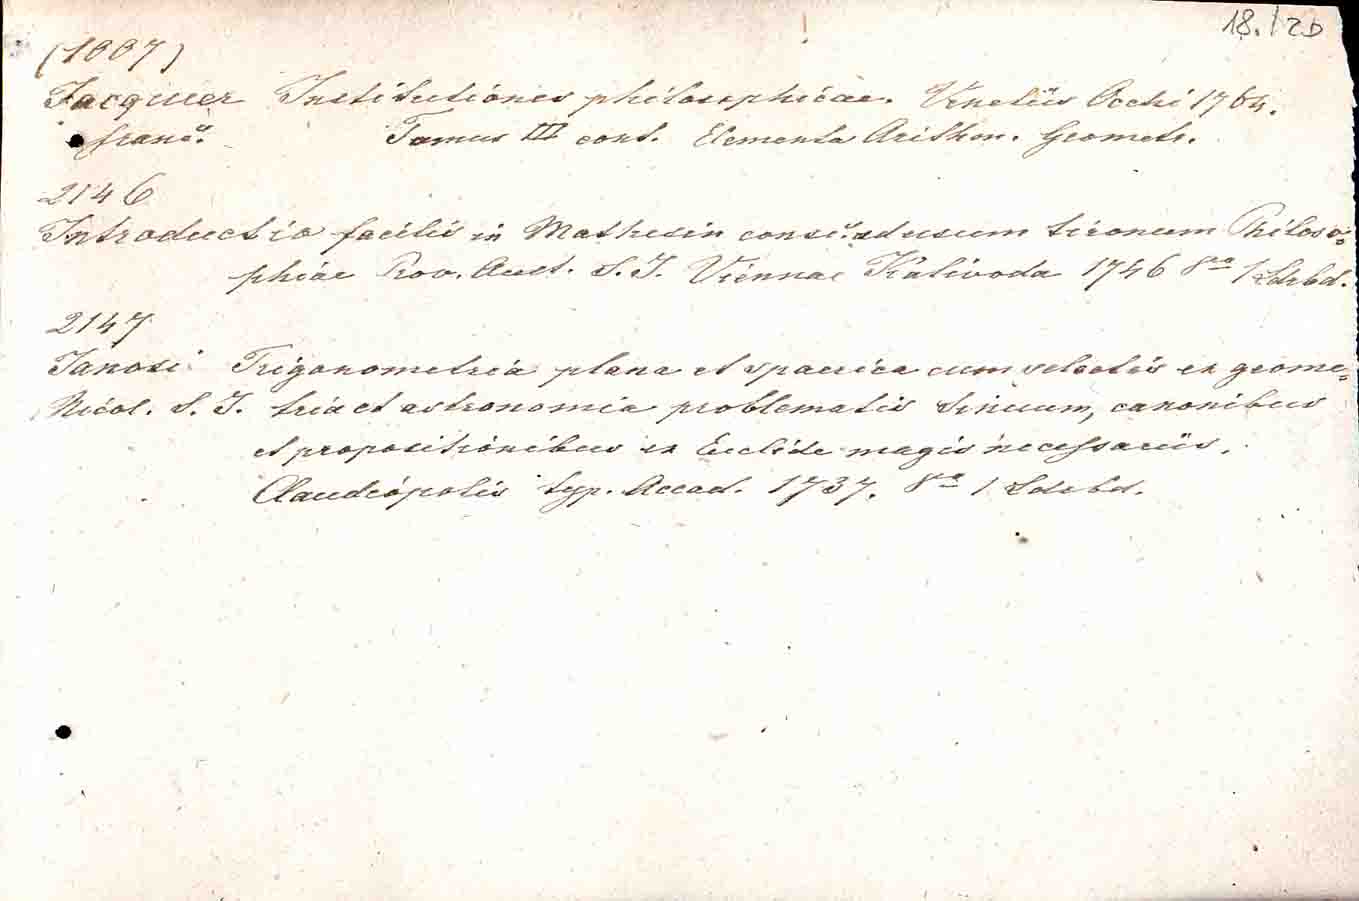 18./2D
(1887)
Jacquier Institutiones philosophicae. Venetiis Occhi 1764.
Franc. Tomus III cont. Elementa Arithm. Geometr.
2146
Introductio facilis in Mathesin conscr. ad usum tironum Philoso=
phiae Prov. Aust. S. J. Viennae Kalivoda 1746 8vo 1 Ldrbd.
2147
Janosi Trigonometria plana et spaerica cum selectis ex geome=
Nicol. S. J. tria et astronomia problematis sinuum, canonibus
et propositionibus ex Euclide magis necessariis.
Claudiópolis typ. Accad. 1737. 8o 1 Ldrbd.